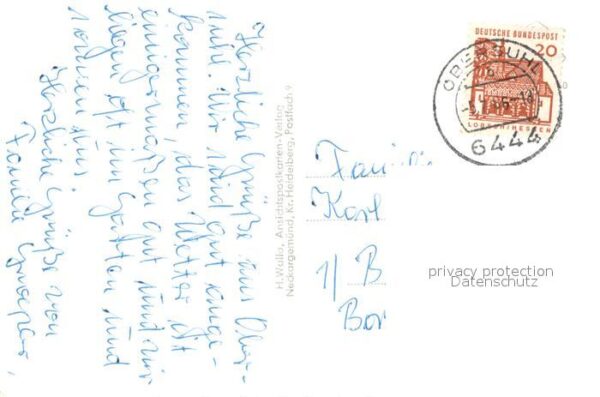 Herzliche Grüße aus Ober-
suhl. Wir sind gut ange-
kommen, das Wetter ist
einigermaßen gut und wir
liegen oft im Garten und
Herzliche Grüße von
Familie
H. Wolla, Ansichtspostkarten-Verlag
Neckargemünd, Kr. Heidelberg, Postfach 9
DEUTSCHE BUNDESPOST
20
LORSCH/HESSEN
OBERSUHL
6444
Karl
1/ B
Bor
privacy protection
Datenschutz